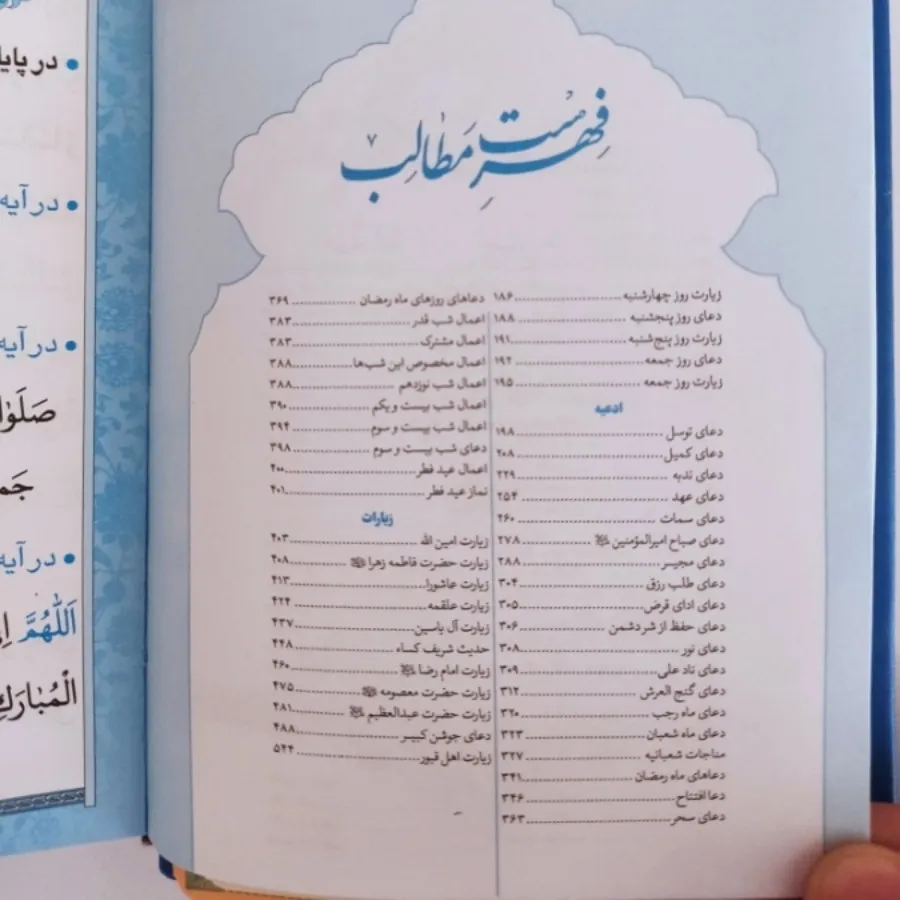 در پایا
در آیه
در آیه
صَلَوٰا
جَم
در آیه
اَللّٰهُمَّ اِ
الْمُبٰارَکِ
فهرست مطالب ۷
زیارت روز چهارشنبه ۱۸۶
دعای روز پنجشنبه ۱۸۸
زیارت روز پنج‌شنبه ۱۹۱
دعای روز جمعه ۱۹۲
زیارت روز جمعه ۱۹۵
ادعیه
دعای توسل ۱۹۸
دعای کمیل ۲۰۸
دعای ندبه ۲۲۹
دعای عهد ۲۵۴
دعای سمات ۲۶۰
دعای صباح امیرالمؤمنین ۲۷۸
دعای مجیر ۲۸۸
دعای طلب رزق ۳۰۴
دعای ادای قرض ۳۰۵
دعای حفظ از شر دشمن ۳۰۶
دعای نور ۳۰۸
دعای ناد علی ۳۰۹
دعای گنج العرش ۳۱۲
دعای ماه رجب ۳۲۰
دعای ماه شعبان ۳۲۳
مناجات شعبانیه ۳۲۷
دعاهای ماه رمضان ۳۴۱
دعا افتتاح ۳۴۶
دعای سحر ۳۶۳
دعاهای روزهای ماه رمضان ۳۶۹
اعمال شب قدر ۳۸۳
اعمال مشترک ۳۸۳
اعمال مخصوص این شب‌ها ۳۸۸
اعمال شب نوزدهم ۳۸۸
اعمال شب بیست و یکم ۳۹۰
اعمال شب بیست و سوم ۳۹۴
دعای شب بیست و سوم ۳۹۸
اعمال عید فطر ۴۰۰
نماز عید فطر ۴۰۱
زیارات
زیارت امین الله ۴۰۳
زیارت حضرت فاطمه زهرا ۴۰۸
زیارت عاشورا ۴۱۳
زیارت علقمه ۴۲۴
زیارت آل یاسین ۴۳۷
حدیث شریف کساء ۴۴۸
زیارت امام رضا ۴۶۰
زیارت حضرت معصومه ۴۷۵
زیارت حضرت عبدالعظیم ۴۸۱
دعای جوشن کبیر ۴۸۸
زیارت اهل قبور ۵۴۴